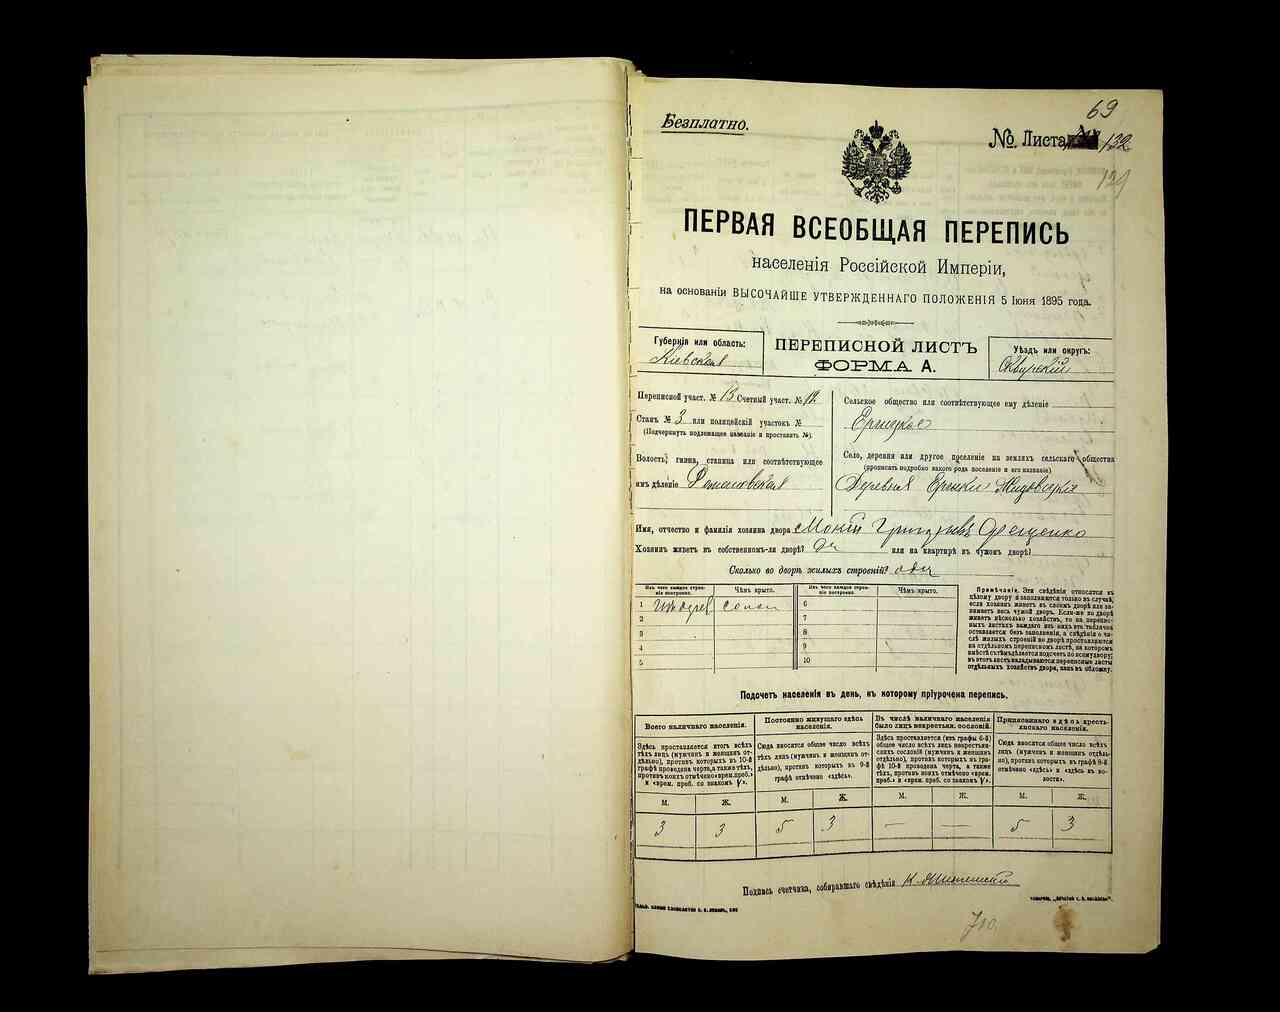 69
Безплатно.
№ Листа 132
129
ПЕРВАЯ ВСЕОБЩАЯ ПЕРЕПИСЬ
населенія Россійской Имперіи,
на основаніи ВЫСОЧАЙШЕ УТВЕРЖДЕННАГО ПОЛОЖЕНІЯ 5 Іюня 1895 года.
Губернія или область:
Кіевская
ПЕРЕПИСНОЙ ЛИСТЪ
ФОРМА А.
Уѣздъ или округъ:
Сквирскій
Переписной участ. № 13 Счетный участ. № 12
Станъ № 3 или полицейскій участокъ №
(Подчеркнуть подлежащее названіе и проставить №).
Волость, гмина, станица или соотвѣтствующее
имъ дѣленіе Романовская
Сельское общество или соотвѣтствующее ему дѣленіе
Ерчицкое
Село, деревня или другое поселеніе на земляхъ сельскаго общества
(прописать подробно какого рода поселеніе и его названіе)
Деревня
Имя, отчество и фамилія хозяина двора Мокій
Хозяинъ живетъ въ собственномъ-ли дворѣ? Да или на квартирѣ въ чужомъ дворѣ?
Сколько во дворѣ жилыхъ строеній?
Изъ чего каждое строеніе построено.
Чѣмъ крыто.
Изъ чего каждое строеніе построено.
Чѣмъ крыто.
1
2
3
4
5
6
7
8
9
10
Примѣчаніе. Эти свѣдѣнія относятся къ
цѣлому двору и заполняются только въ случаѣ,
если хозяинъ живетъ въ своемъ дворѣ или занимаетъ
весь чужой дворъ. Если-же во дворѣ
живетъ нѣсколько хозяйствъ, то на переписныхъ
листахъ каждаго изъ нихъ эта табличка
оставляется безъ заполненія, а свѣдѣнія о числѣ
жилыхъ строеній во дворѣ проставляются
на отдѣльномъ переписномъ листѣ, на которомъ
вмѣстѣ съ тѣмъ дѣлается подсчетъ по всему двору;
въ этотъ листъ вкладываются переписные листы
отдѣльныхъ хозяйствъ двора, какъ въ обложку.
Подсчетъ населенія въ день, къ которому пріурочена перепись.
Всего наличнаго населенія.
Здѣсь проставляется итогъ всѣхъ
тѣхъ лицъ (мужчинъ и женщинъ отдѣльно),
противъ которыхъ въ 10-й
графѣ проведена черта, а также тѣхъ,
противъ коихъ отмѣчено «врем. преб.»
и «врем. преб. со знакомъ V».
Постоянно живущаго здѣсь
населенія.
Сюда вносится общее число всѣхъ
тѣхъ лицъ (мужчинъ и женщинъ отдѣльно),
противъ которыхъ въ 9-й
графѣ отмѣчено «здѣсь».
Въ числѣ наличнаго населенія
было лицъ некрестьян. сословій.
Здѣсь проставляется (изъ графы 6-й)
общее число всѣхъ лицъ некрестьянскихъ
сословій (мужчинъ и женщинъ
отдѣльно), противъ которыхъ въ графѣ
10-й проведена черта, а также
тѣхъ, противъ коихъ отмѣчено «врем.
преб.» и «врем. преб. со знакомъ V».
Приписаннаго здѣсь крестьянскаго
населенія.
Сюда вносится общее число всѣхъ
лицъ (мужчинъ и женщинъ отдѣльно),
противъ которыхъ въ графѣ 8-й
отмѣчено «здѣсь» и «здѣсь въ волости».
М. Ж. М. Ж. М. Ж. М. Ж.
3 3 5 3 — — 5 3
Подпись счетчика, собиравшаго свѣдѣнія
700